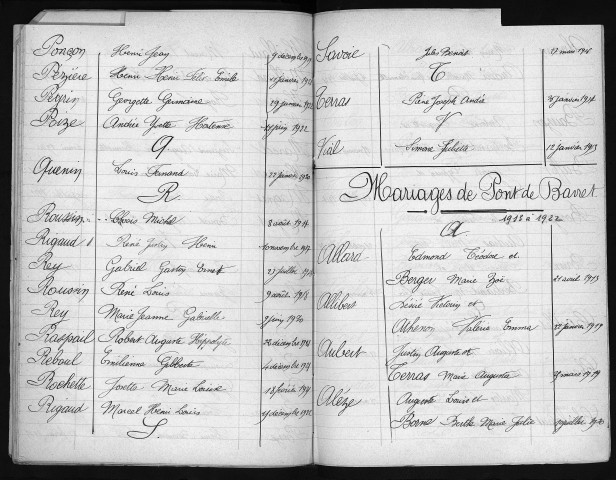 Ponçon Henri Jean 9 décembre
Pézière Henri Félix Emile janvier
Peyrin Georgette Germaine 29 janvier
Pize Andrée Yvette Hortense juin 1922
Q
Quenin Louis Fernand 22 1920
R
Roussin Michel 8 août
Rigaud René Henri novembre
Rey Gabriel Gaston Ernest 23 juillet
Roussin René Louis 9 août 1918
Rey Marie Jeanne Gabrielle juin 1920
Raspail Robert Auguste Hippolyte décembre
Reboul Emilienne Gilberte 4 décembre
Rochette Josette Marie Louise 18 février
Rigaud Marcel Henri Louis décembre 1922
S
Savoie Jules Benoît 27 mars
T
Terras Pierre Joseph André janvier
V
Vial Simone Juliette 12 janvier 1913
Mariages de Pont de Barret
1913 à 1922
A
Allard Edmond Théodore et
Berger Marie Zoé 21 avril 1913
Allibert Victorin et
Athenor Valérie Emma janvier 1919
Aubert Justin Auguste et
Terras Marie Augusta mars 1919
Alèze Auguste Louis et
Borne Berthe Marie Julie juillet 1920